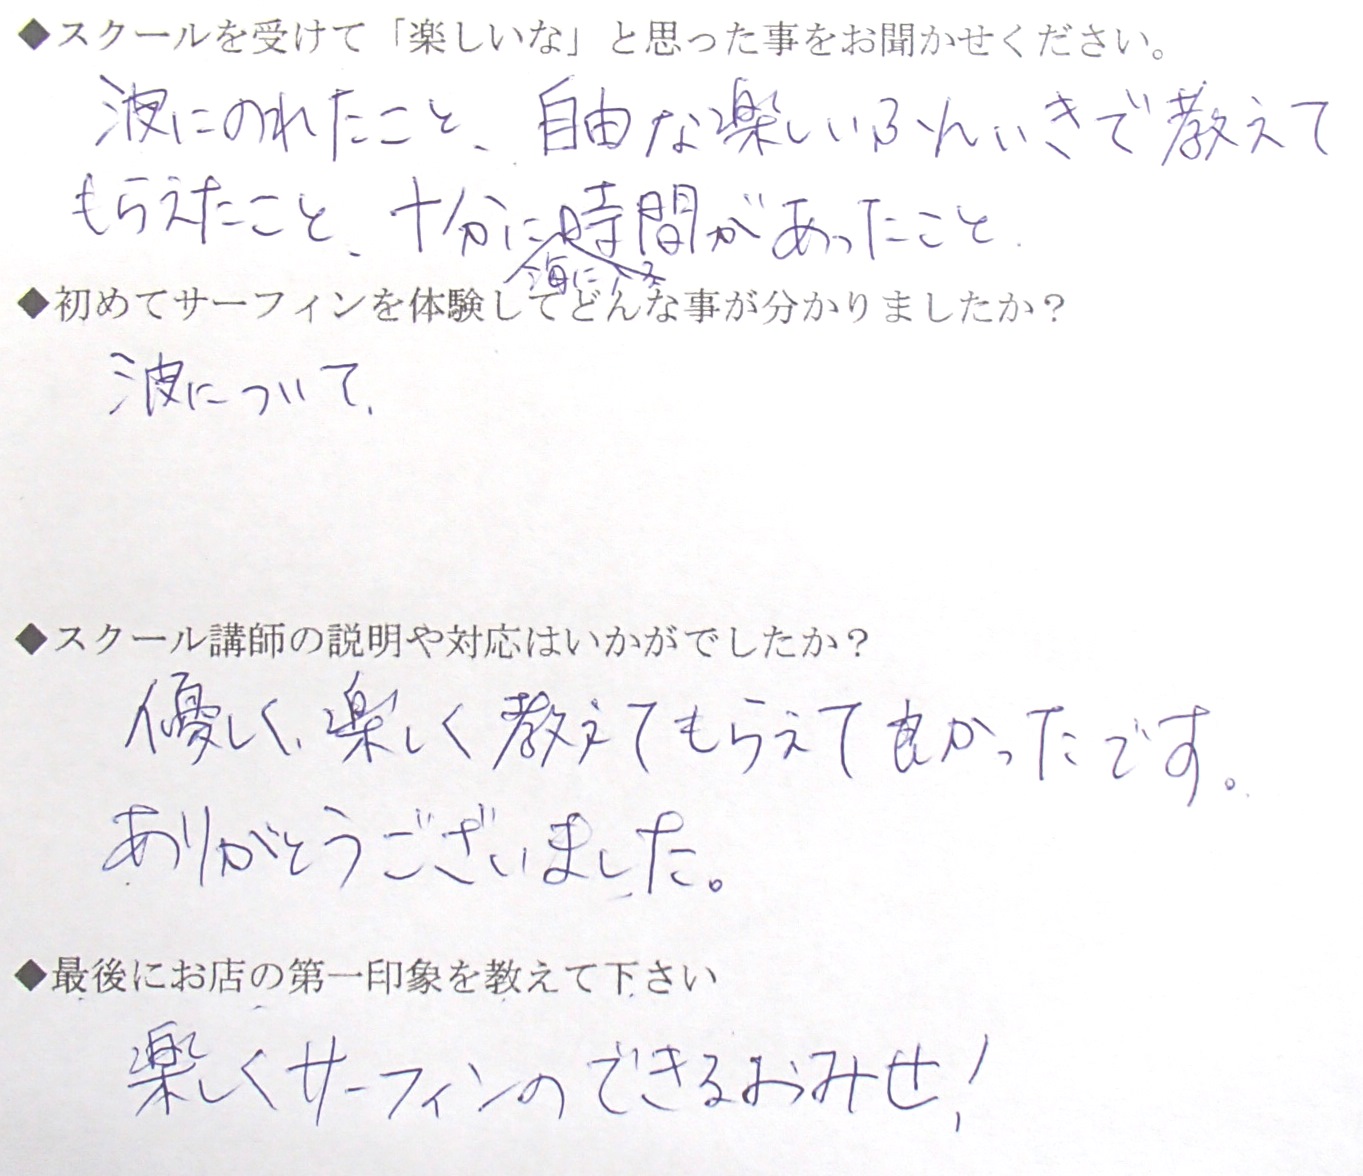 ◆スクールを受けて「楽しいな」と思った事をお聞かせください。
波にのれたこと、自由な楽しいふんいきで教えて
もらえたこと、十分に時間があったこと.
海に入る
◆初めてサーフィンを体験してどんな事が分かりましたか？
波について、
◆スクール講師の説明や対応はいかがでしたか？
優しく、楽しく教えてもらえて良かったです。
ありがとうございました。
◆最後にお店の第一印象を教えて下さい
楽しくサーフィンのできるおみせ！